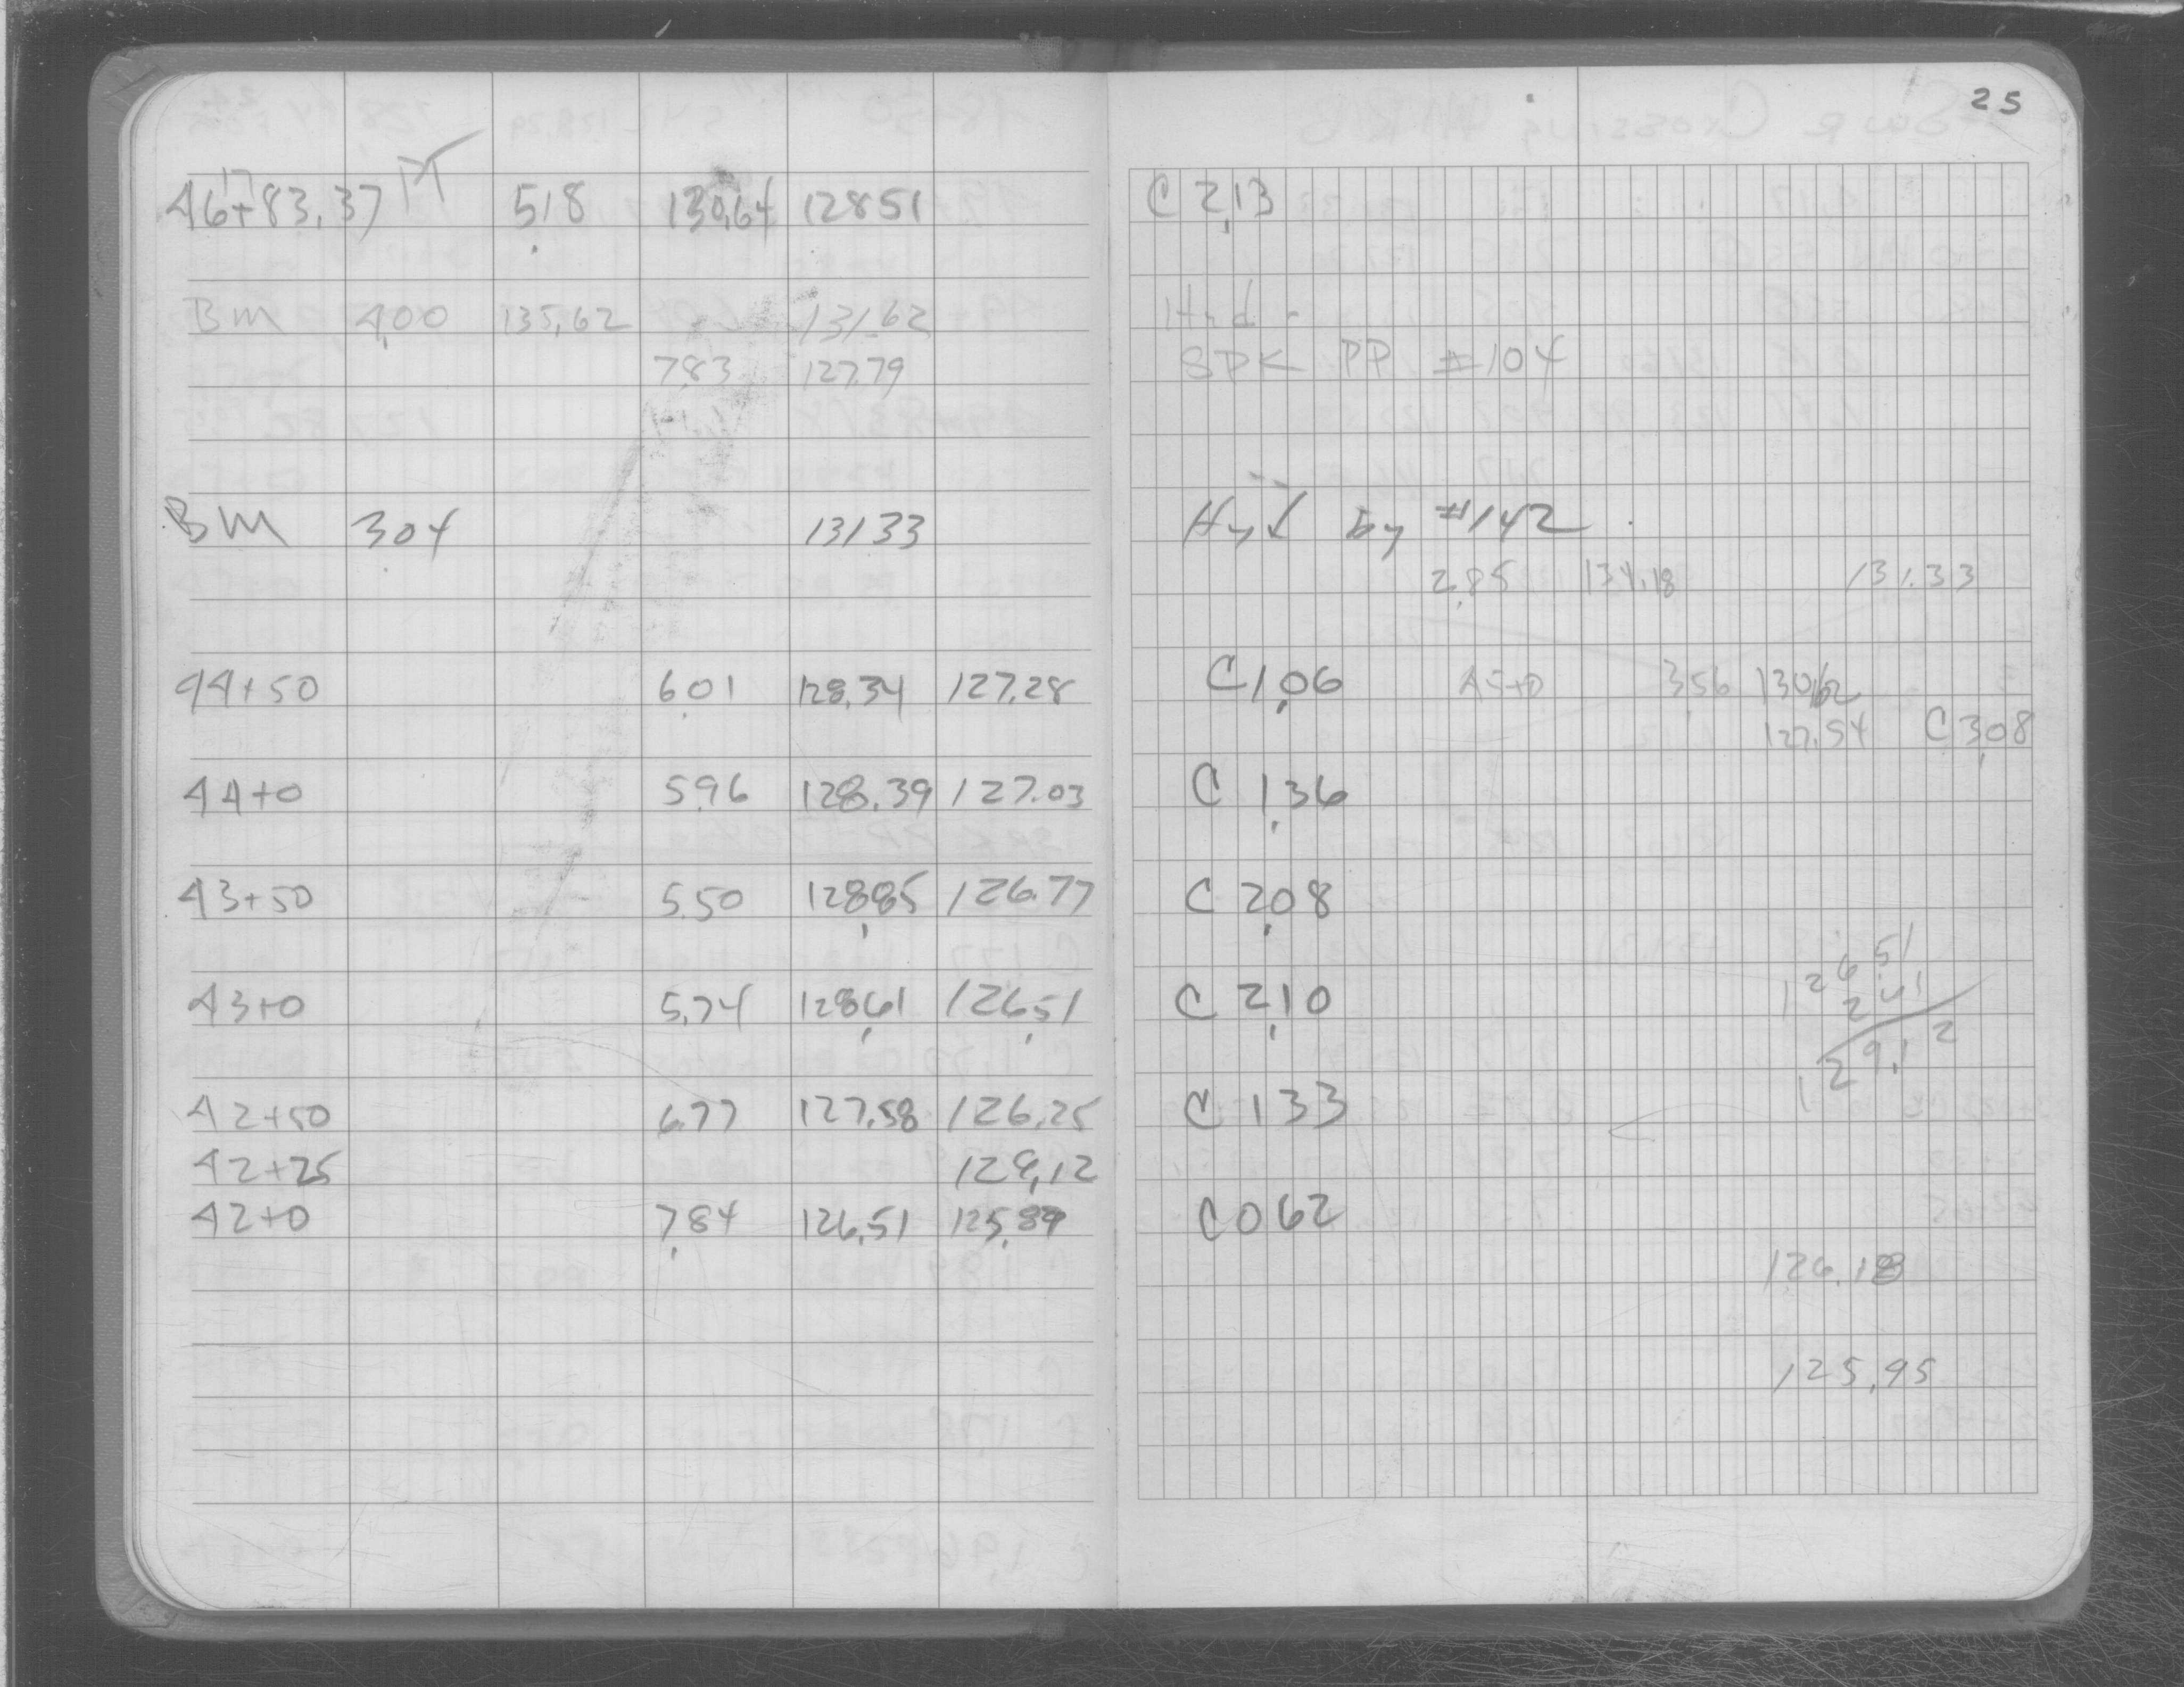 25
17
46+83.37 M 5.18 130.64 128.51 C 2.13
BM 4.00 135.62 131.62 Hyd -
7.83 127.79 SPK PP #104
BM 3.04 131.33 Hyd by #142
2.85 134.18 131.33
44+50 6.01 128.34 127.28 C 1.06 45+0 3.56 130.62
127.54 C 3.08
44+0 5.96 128.39 127.03 C 1.36
43+50 5.50 128.85 126.77 C 2.08
126.51
43+0 5.74 128.61 126.51 C 2.10 2.61
129.12
42+50 6.77 127.58 126.25 C 1.33
42+25 129.12
42+0 7.84 126.51 125.89 C 0.62
126.18
125.95